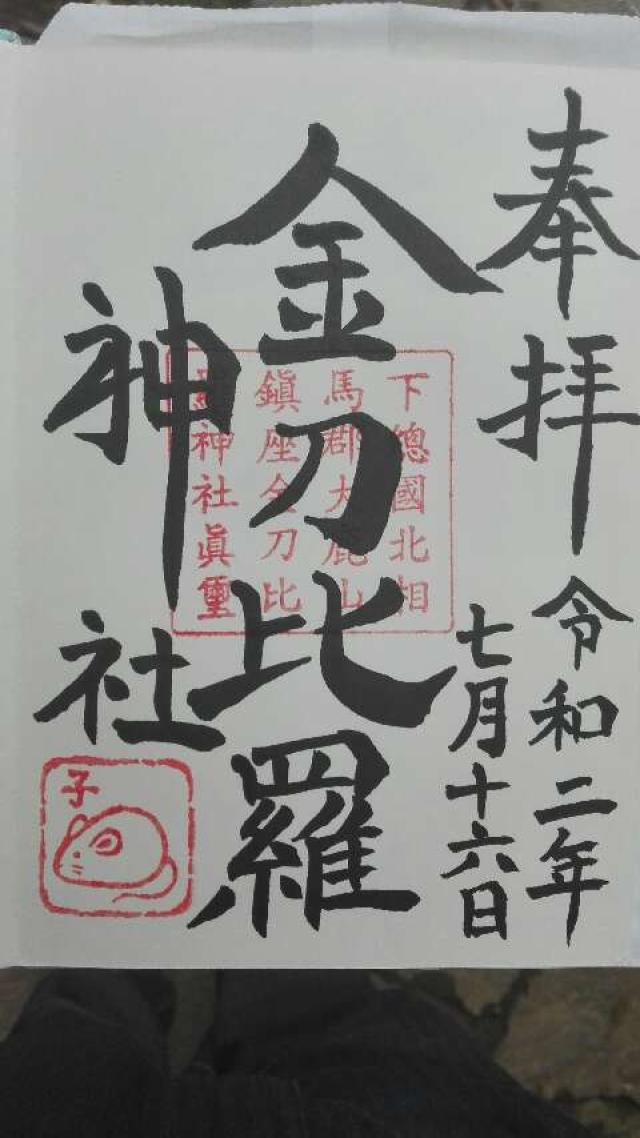 奉拝
令和二年
七月十六日
金刀比羅
神社
下總國北相
馬郡大鹿山
鎮座金刀比
羅神社眞璽
子